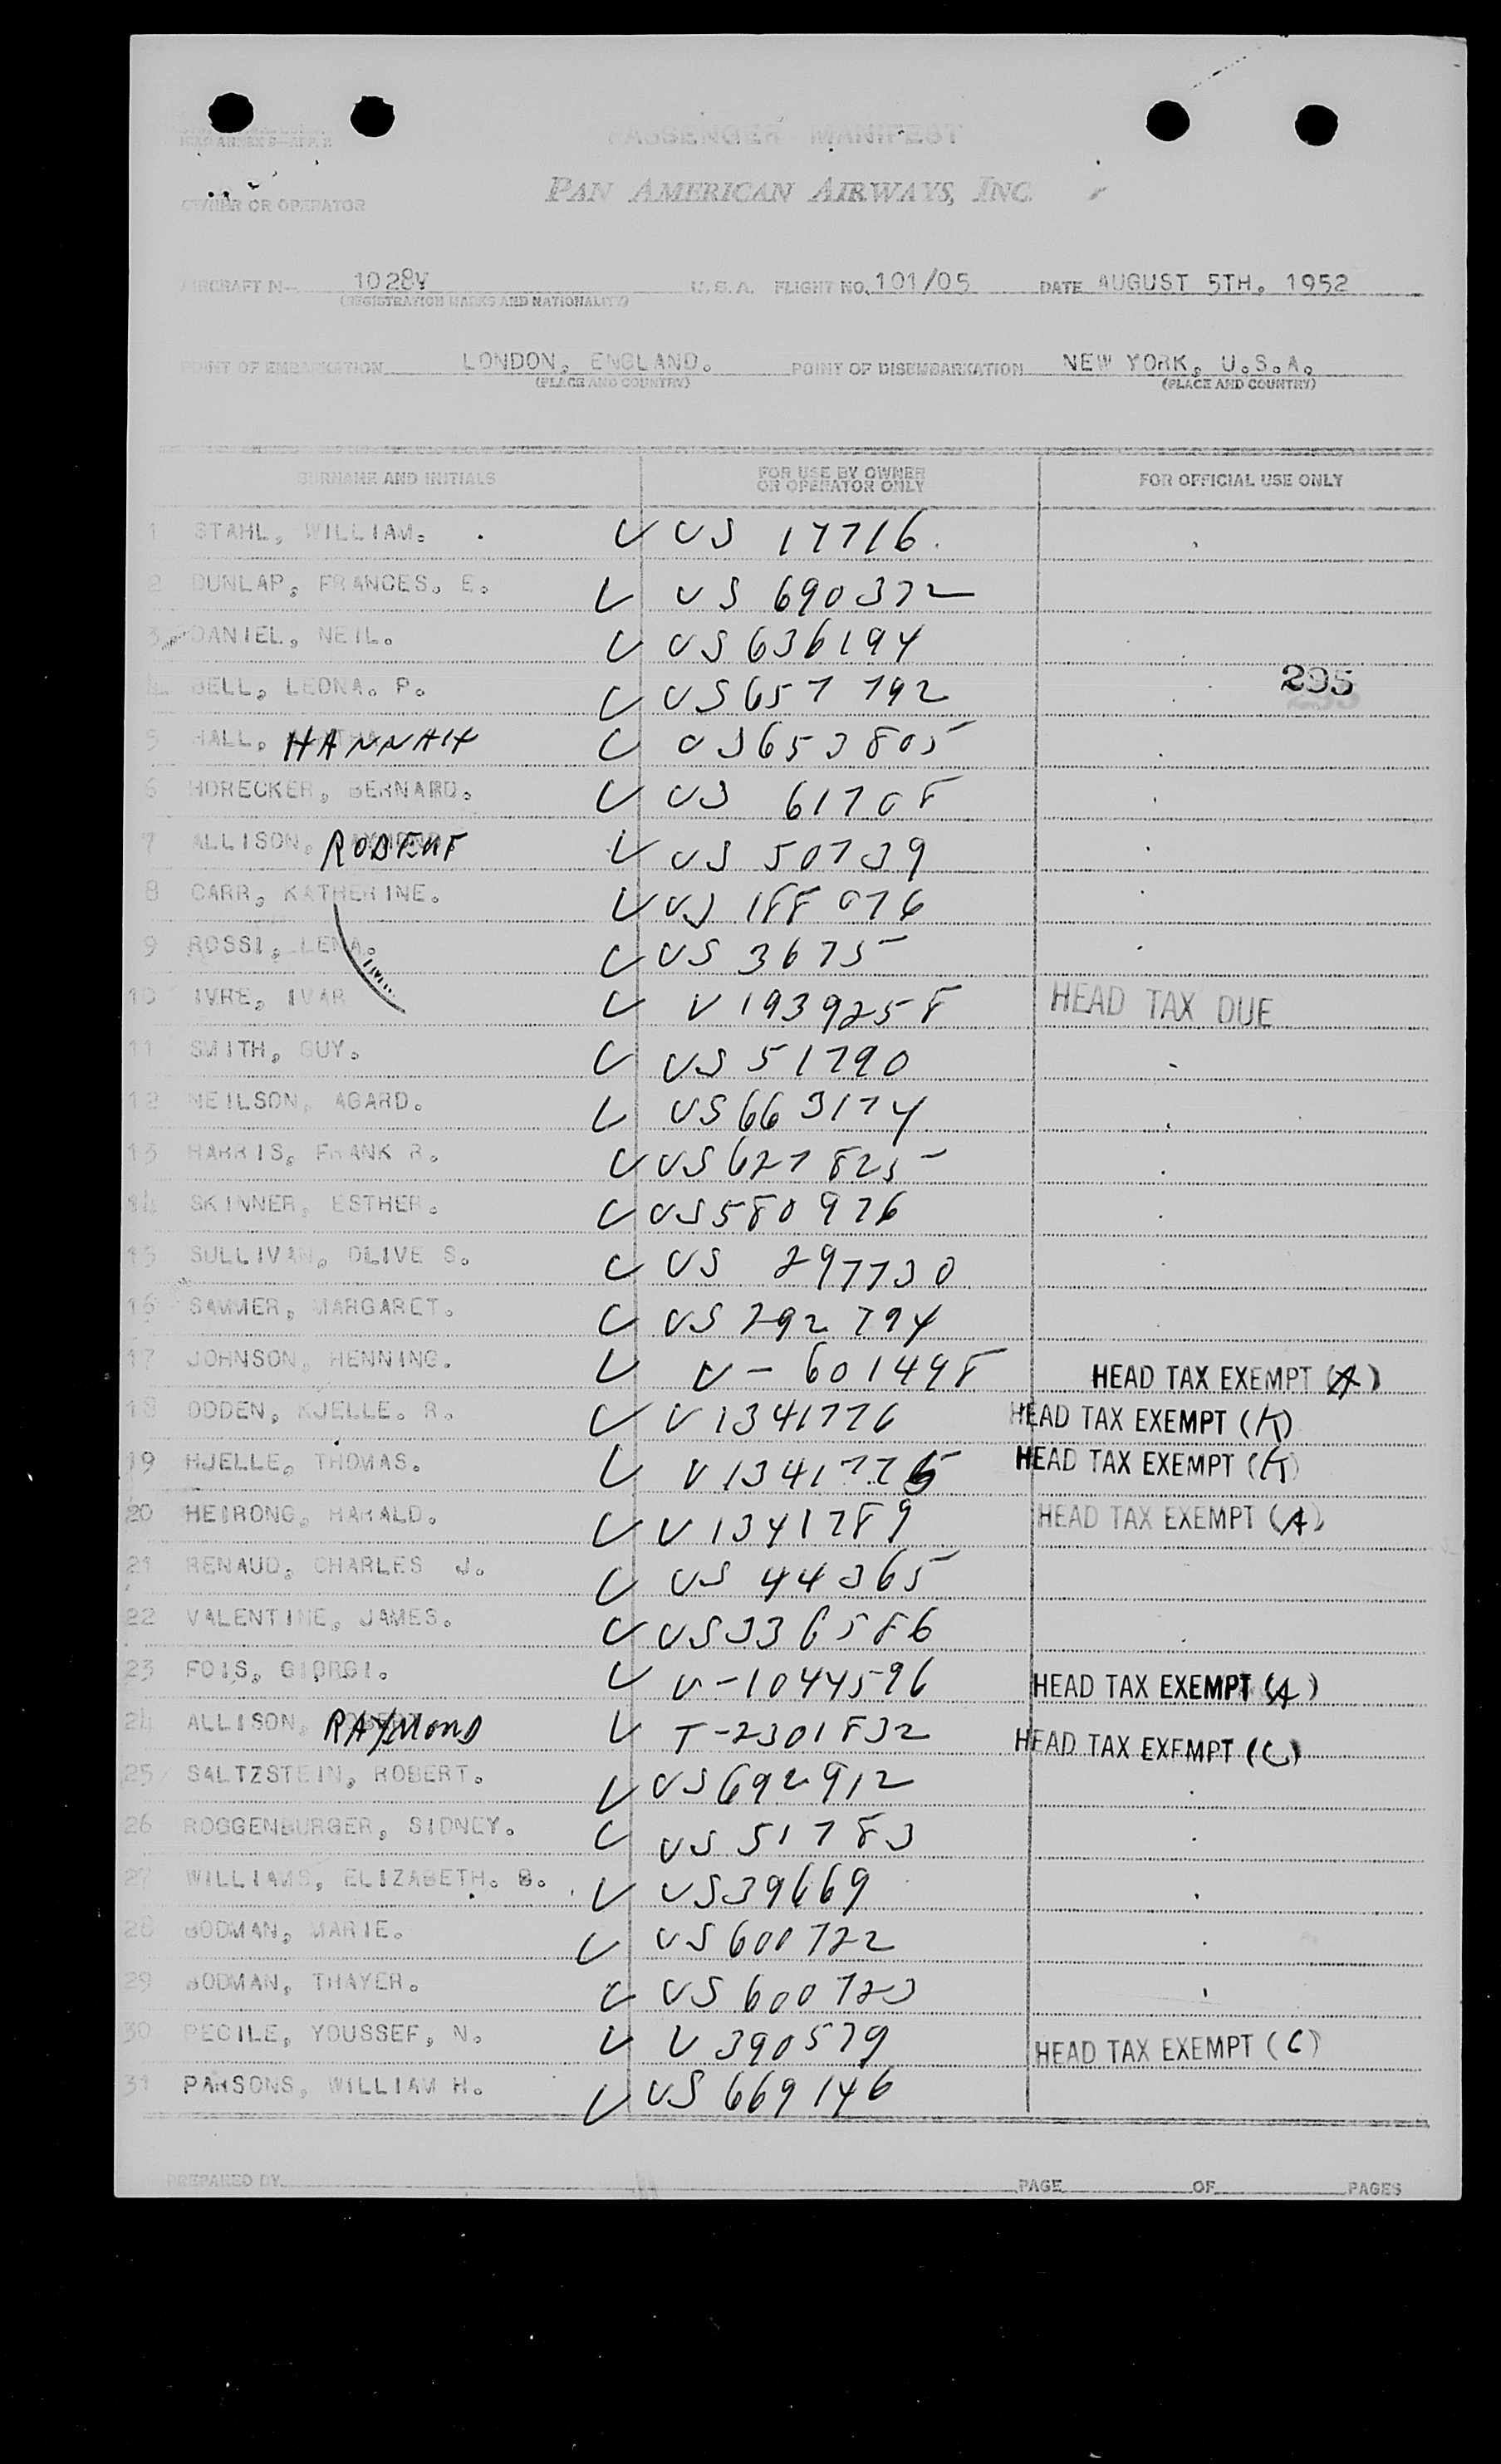 ICAO ANNEX 9—APP. 2
PASSENGER MANIFEST
OWNER OR OPERATOR
PAN AMERICAN AIRWAYS, INC.
AIRCRAFT N— 1028V U.S.A. FLIGHT NO. 101/05 DATE AUGUST 5TH. 1952
(REGISTRATION MARKS AND NATIONALITY)
POINT OF EMBARKATION LONDON, ENGLAND. POINT OF DISEMBARKATION NEW YORK, U.S.A.
(PLACE AND COUNTRY) (PLACE AND COUNTRY)
SURNAME AND INITIALS FOR USE BY OWNER OR OPERATOR ONLY FOR OFFICIAL USE ONLY
1 STAHL, WILLIAM. US 17716
2 DUNLAP, FRANCES. E. US 690372
3 DANIEL, NEIL. US 636194
4 BELL, LEONA. P. US 657792 295
5 HALL, HANNAH US 653805
6 HORECKER, BERNARD. US 61708
7 ALLISON, ROBERT US 50739
8 CARR, KATHERINE. US 188076
9 ROSSI, LENA. US 3675
10 IVRE, IVAR V 1939258 HEAD TAX DUE
11 SMITH, GUY. US 51790
12 NEILSON, AGARD. US 663174
13 HARRIS, FRANK R. US 627825
14 SKINNER, ESTHER. US 580976
15 SULLIVAN, OLIVE S. US 297730
16 SAMMER, MARGARET. US 292794
17 JOHNSON, HENNING. V - 601498 HEAD TAX EXEMPT (A)
18 ODDEN, KJELLE. R. V 1341776 HEAD TAX EXEMPT (A)
19 HJELLE, THOMAS. V 1341775 HEAD TAX EXEMPT (A)
20 HEIRONG, HARALD. V 1341789 HEAD TAX EXEMPT (A)
21 RENAUD, CHARLES J. US 44365
22 VALENTINE, JAMES. US 336586
23 FOIS, GIORGI. V - 1044596 HEAD TAX EXEMPT (A)
24 ALLISON, RAYMOND T - 2301832 HEAD TAX EXEMPT (C)
25 SALTZSTEIN, ROBERT. US 692912
26 ROGGENBURGER, SIDNEY. US 51783
27 WILLIAMS, ELIZABETH. B. US 39669
28 BODMAN, MARIE. US 600722
29 BODMAN, THAYER. US 600723
30 PECILE, YOUSSEF, N. V 390579 HEAD TAX EXEMPT (C)
31 PARSONS, WILLIAM H. US 669146
PREPARED BY PAGE OF PAGES